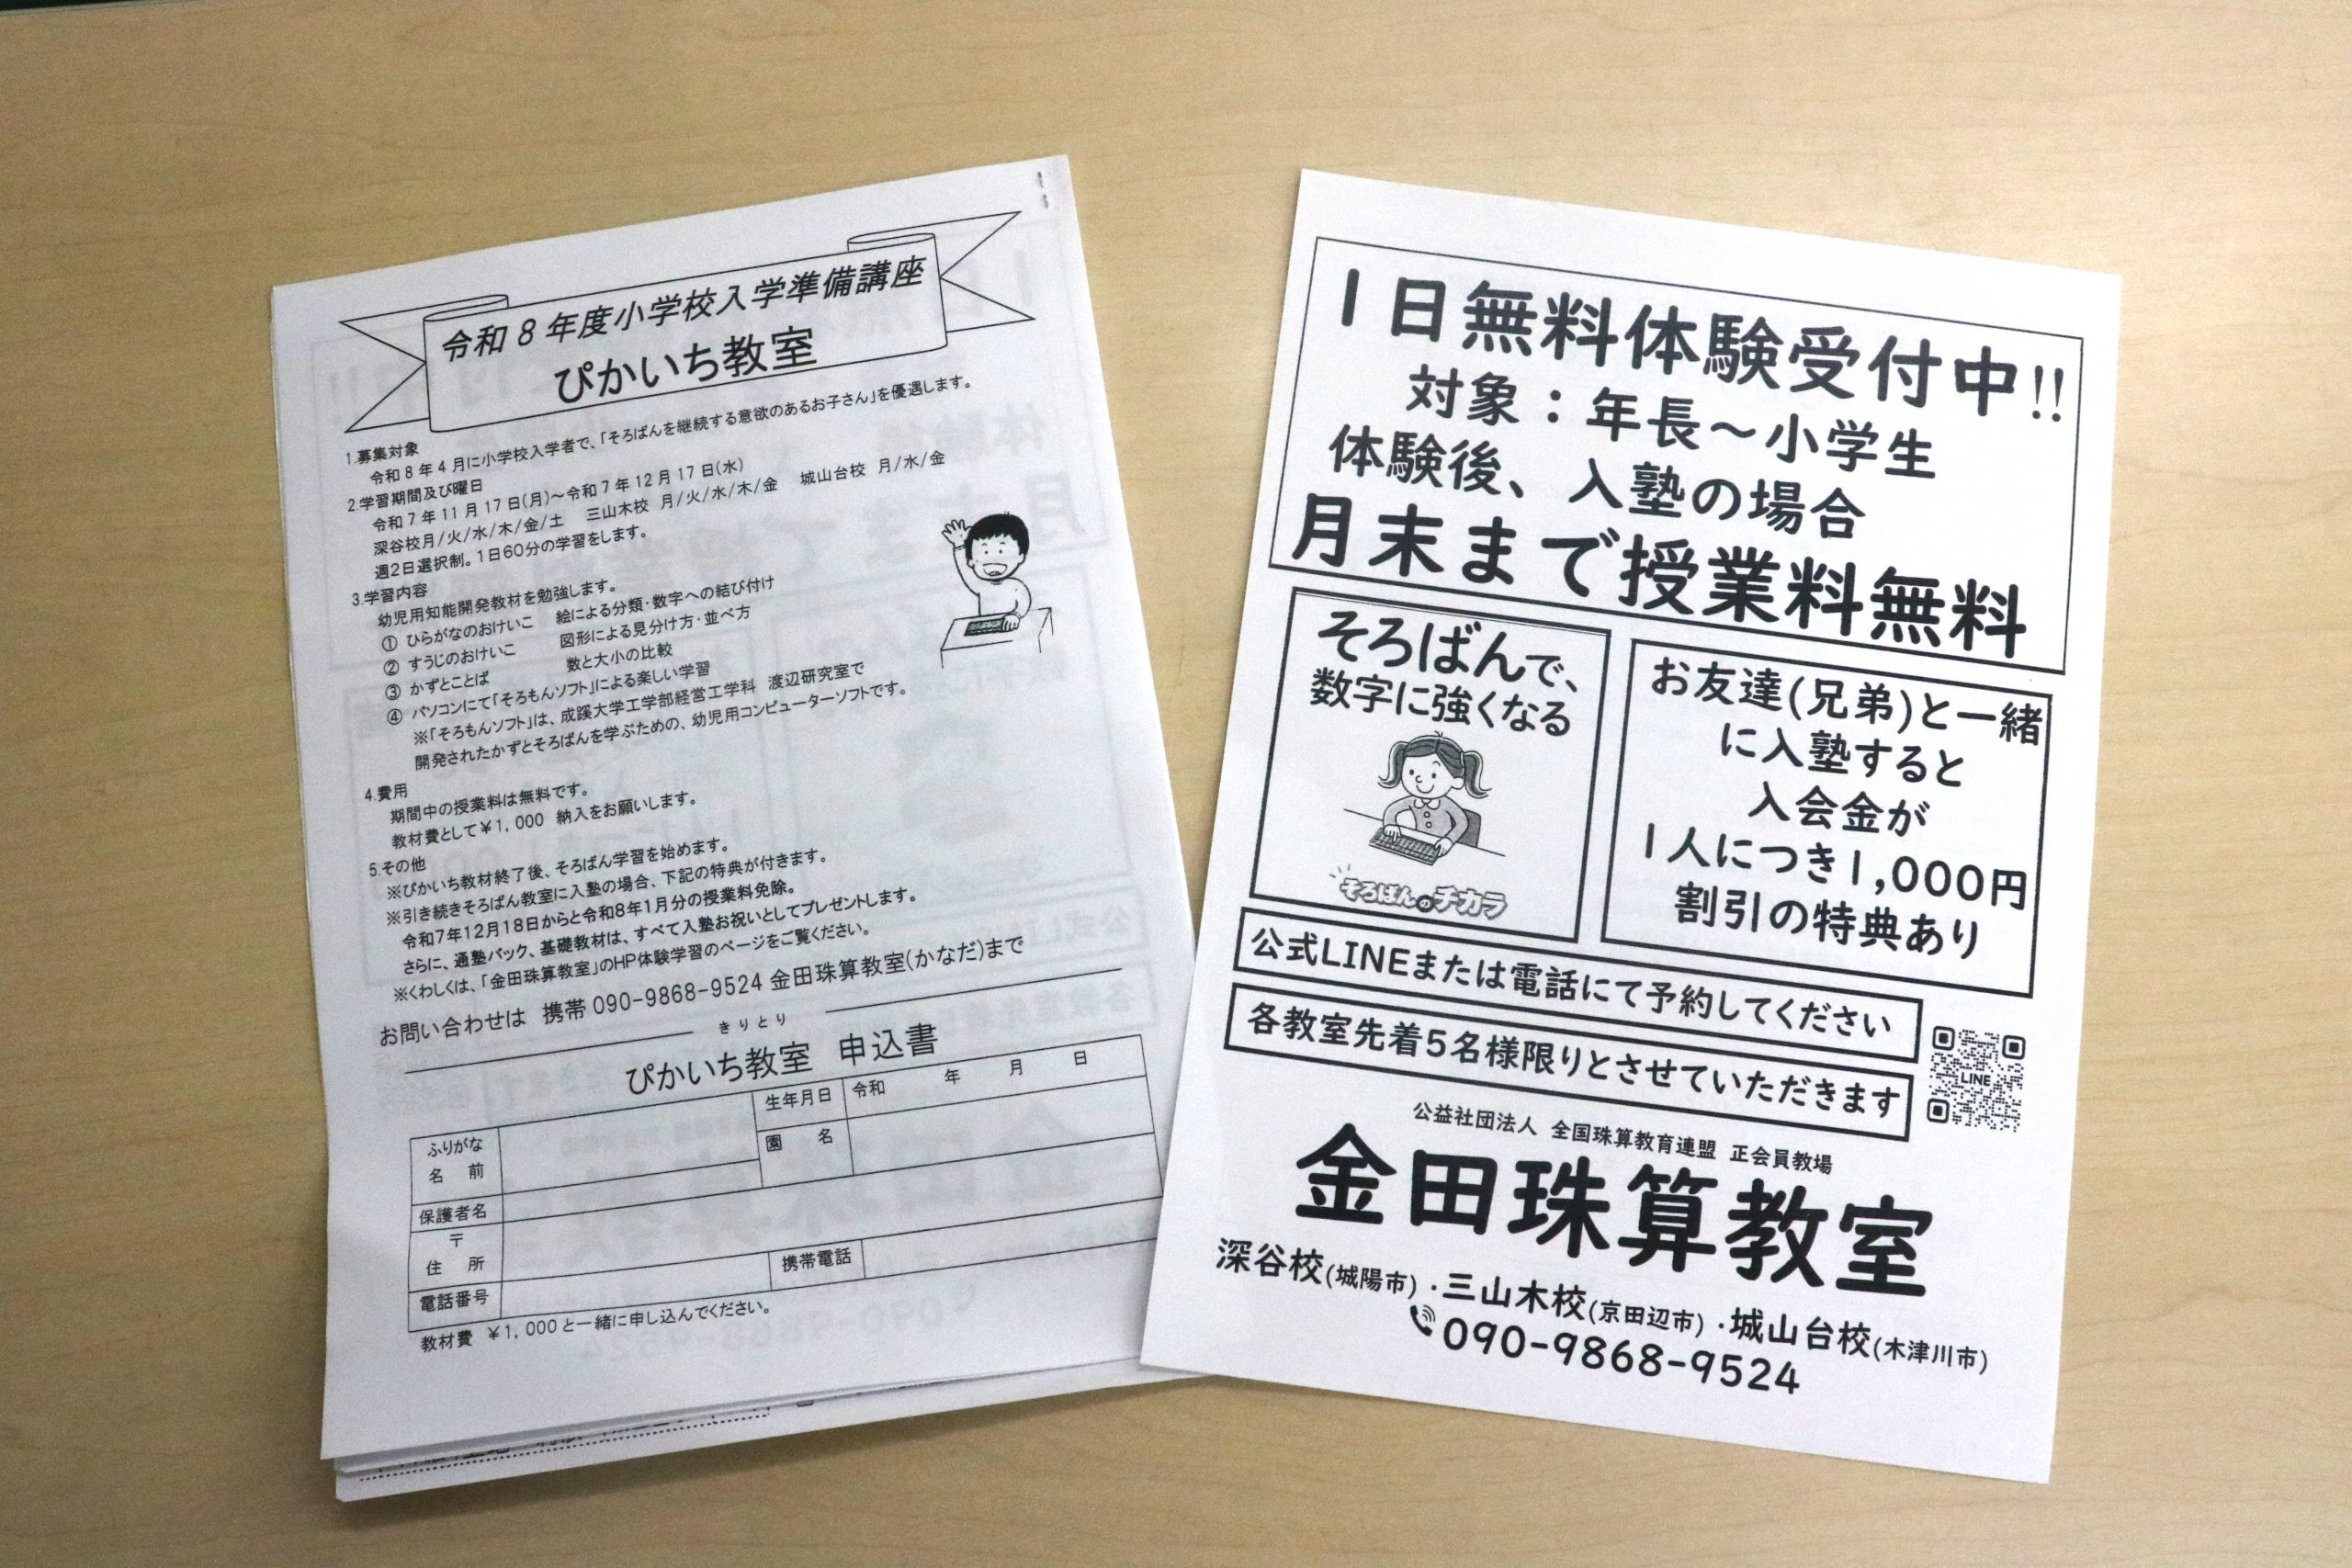 令和8年度小学校入学準備講座
ぴかいち教室
1.募集対象
令和8年4月に小学校入学者で、「そろばんを継続する意欲のあるお子さん」を優遇します。
2.学習期間及び曜日
令和7年11月17日(月)～令和7年12月17日(水)
深谷校月/火/水/木/金/土 三山木校 月/火/水/木/金 城山台校 月/水/金
週2日選択制。1日60分の学習をします。
3.学習内容
幼児用知能開発教材を勉強します。
① ひらがなのおけいこ 絵による分類・数字への結び付け
② すうじのおけいこ 図形による見分け方・並べ方
③ かずとことば 数と大小の比較
④ パソコンにて「そろもんソフト」による楽しい学習
※「そろもんソフト」は、成蹊大学工学部経営工学科 渡辺研究室で
開発されたかずとそろばんを学ぶための、幼児用コンピューターソフトです。
4.費用
期間中の授業料は無料です。
教材費として￥1,000 納入をお願いします。
5.その他
※ぴかいち教材終了後、そろばん学習を始めます。
※引き続きそろばん教室に入塾の場合、下記の特典が付きます。
令和7年12月18日からと令和8年1月分の授業料免除。
さらに、通塾バック、基礎教材は、すべて入塾お祝いとしてプレゼントします。
※くわしくは、「金田珠算教室」のHP体験学習のページをご覧ください。
お問い合わせは 携帯 090-9868-9524 金田珠算教室(かなだ)まで
きりとり
ぴかいち教室 申込書
ふりがな
名 前
生年月日 令和 年 月 日
園 名
保護者名
〒
住 所
電話番号
携帯電話
教材費 ￥1,000と一緒に申し込んでください。
1日無料体験受付中!!
対象：年長～小学生
体験後、入塾の場合
月末まで授業料無料
そろばんで、
数字に強くなる
そろばんのチカラ
お友達(兄弟)と一緒
に入塾すると
入会金が
1人につき1,000円
割引の特典あり
公式LINEまたは電話にて予約してください
各教室先着5名様限りとさせていただきます
LINE
公益社団法人 全国珠算教育連盟 正会員教場
金田珠算教室
深谷校(城陽市)・三山木校(京田辺市)・城山台校(木津川市)
090-9868-9524